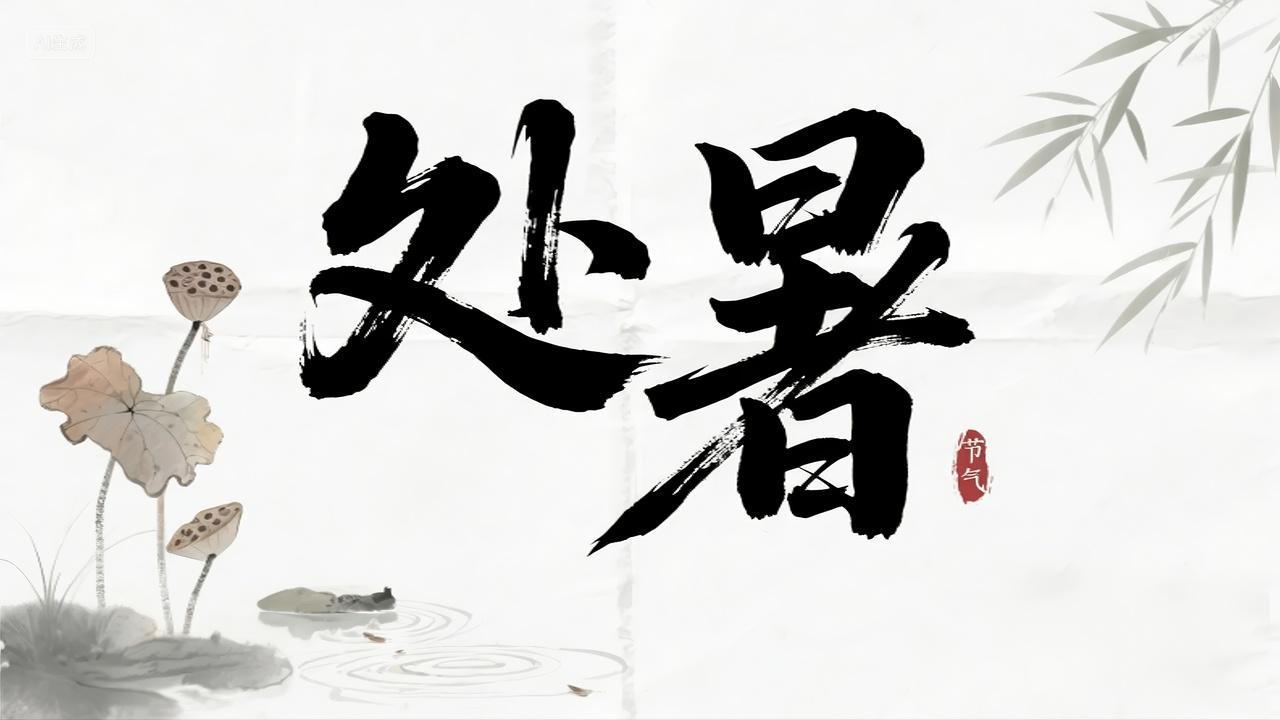 AI生成
处暑
节气